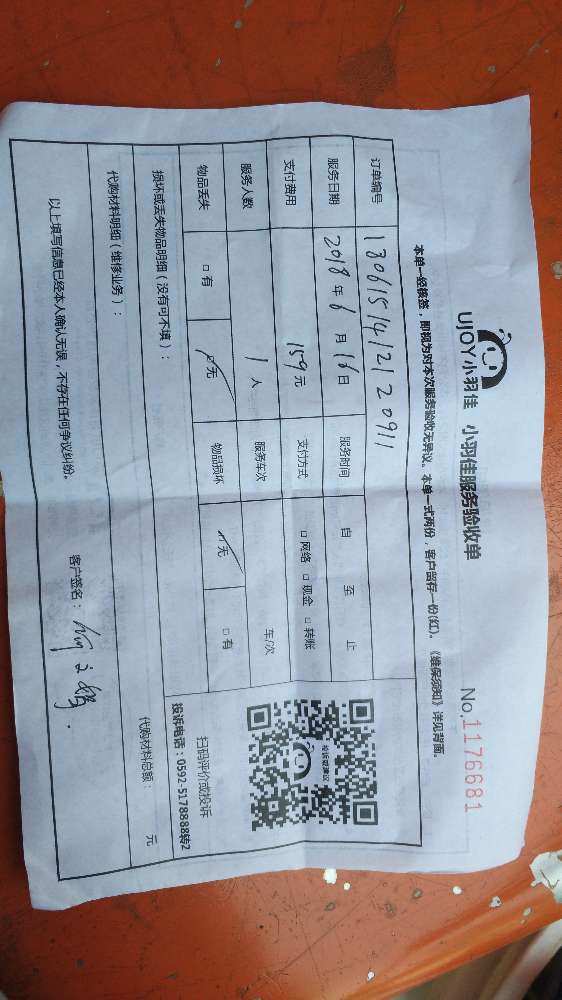 UJOY小羽佳 小羽佳服务验收单 No.1176681
本单一经核签，即视为对本次服务验收无异议。本单一式两份，客户留存一份(红)。《维保须知》详见背面。
订单编号 180615141220911
服务日期 2018年6月16日 服务时间 自 至 止
支付费用 159元 支付方式 □网络 □现金 □转账
服务人数 1人 服务车次 车/次
物品丢失 □有 □无 物品损坏 □无 □有
损坏或丢失物品明细（没有可不填）：
投诉或建议
扫码评价或投诉
投诉电话：0592-5178888转2
代购材料明细（维修业务）： 代购材料总额： 元
以上填写信息已经本人确认无误，不存在任何争议纠纷。 客户签名：